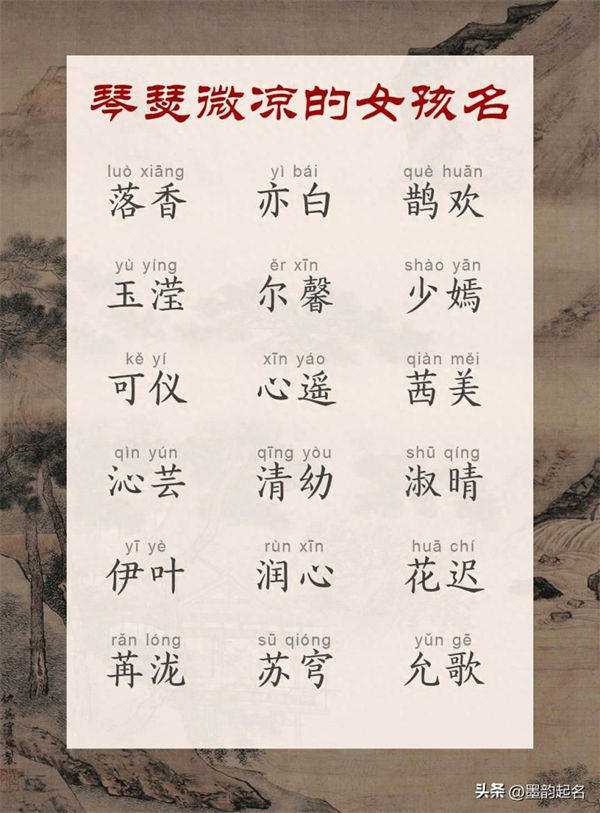 琴瑟微凉的女孩名
luò xiāng yì bái què huān
落香 亦白 鹊欢
yù yíng ěr xīn shào yān
玉滢 尔馨 少嫣
kě yí xīn yáo qiàn měi
可仪 心遥 茜美
qìn yún qīng yòu shū qíng
沁芸 清幼 淑晴
yī yè rùn xīn huā chí
伊叶 润心 花迟
rǎn lóng sū qióng yǔn gē
苒泷 苏穹 允歌
头条 @墨韵起名